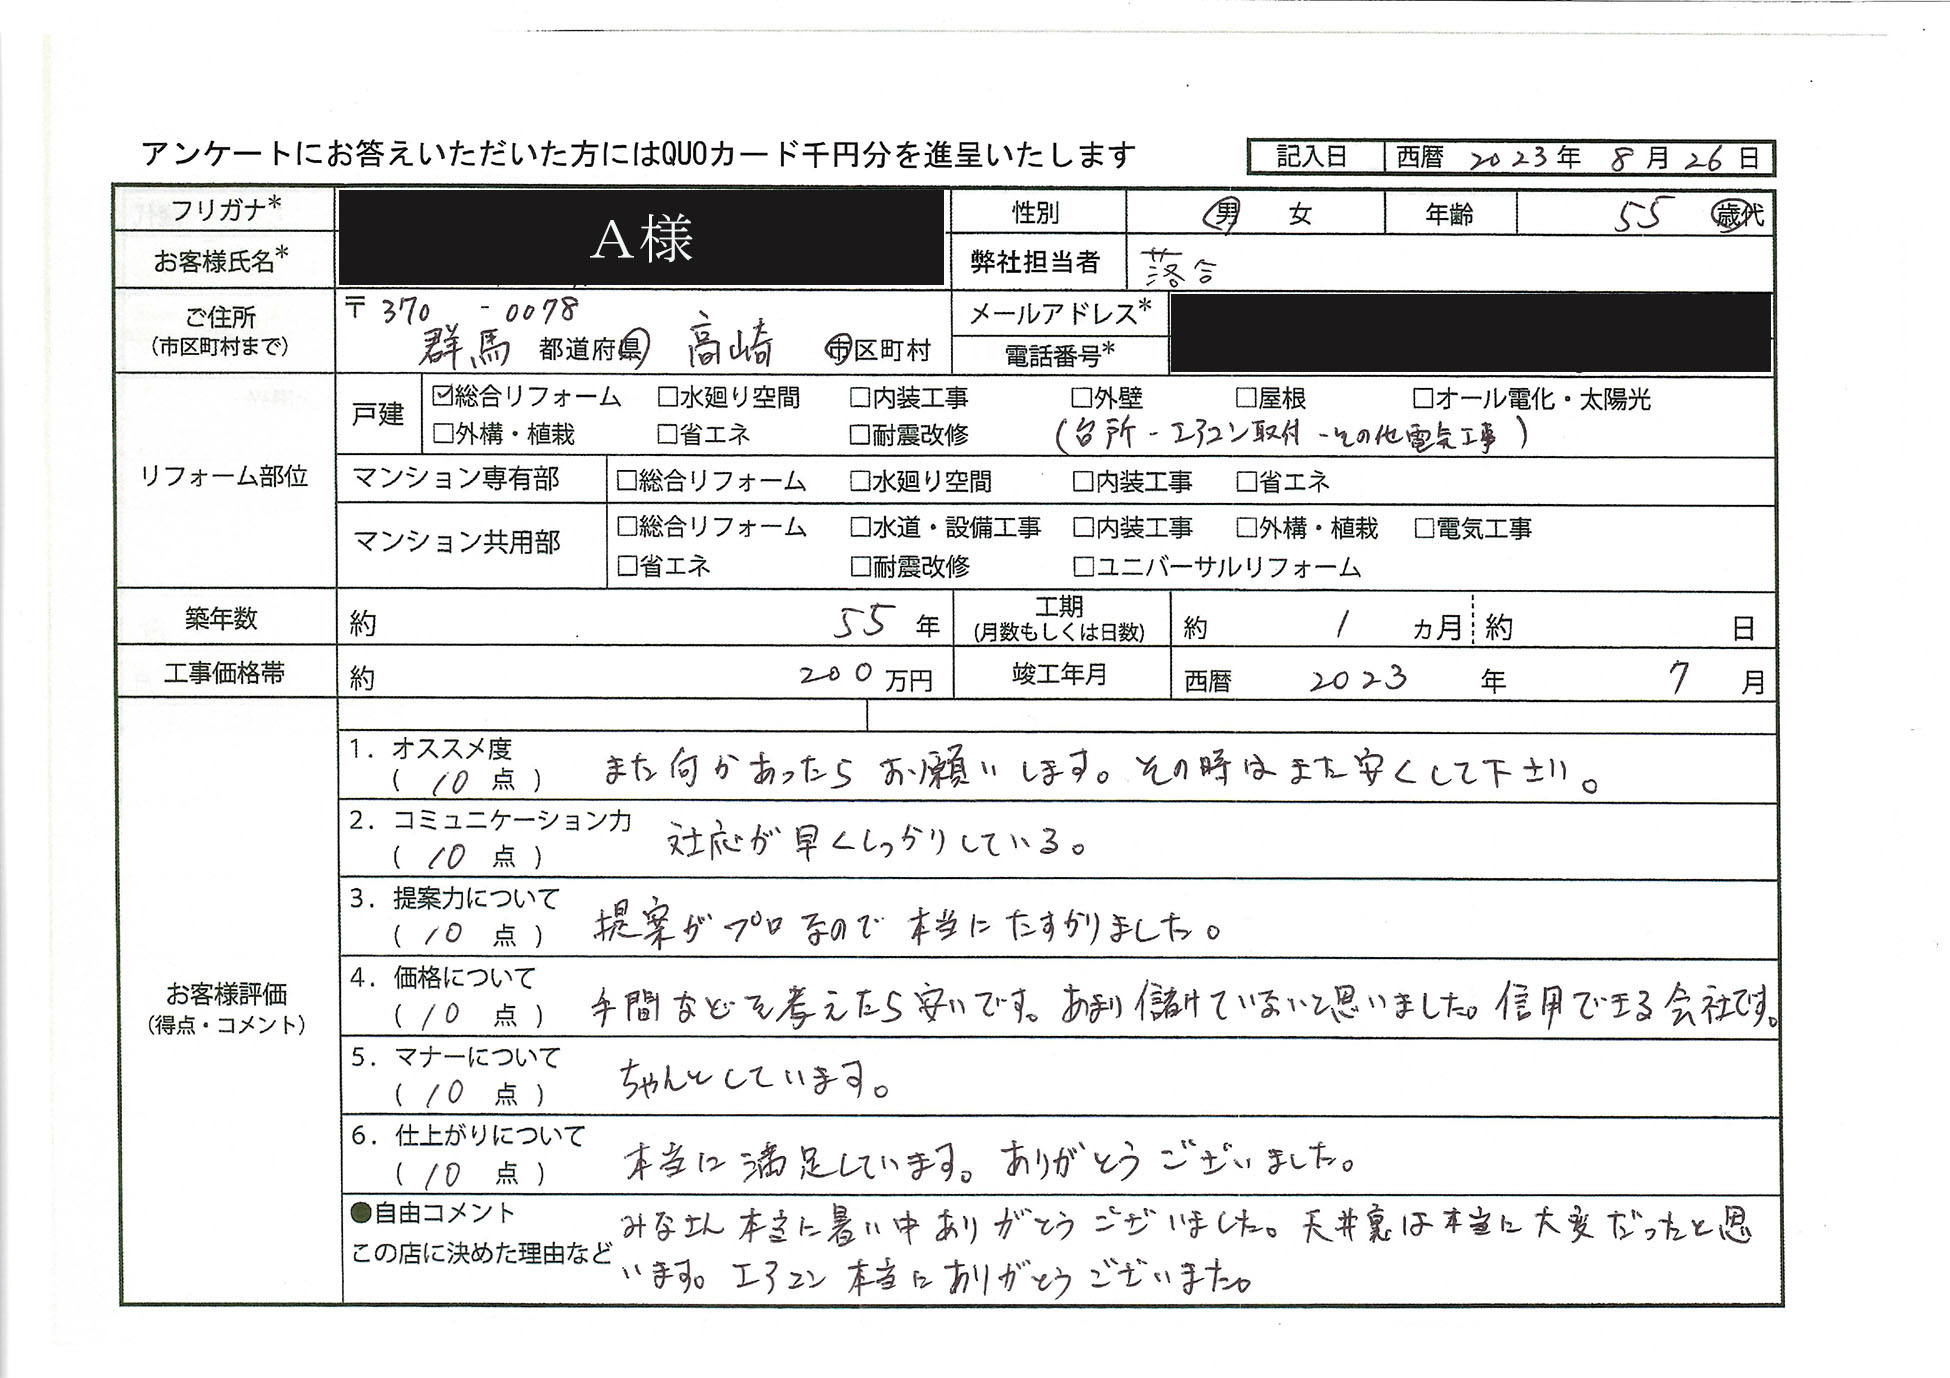 アンケートにお答えいただいた方にはQUOカード千円分を進呈いたします
記入日 西暦 2023年 8月 26日
フリガナ* A様 性別 男 女 年齢 55 歳代
お客様氏名* 弊社担当者 落合
ご住所 (市区町村まで) 〒370-0078 メールアドレス*
群馬 都道府県 高崎 市区町村 電話番号*
リフォーム部位
戸建 ☑総合リフォーム □水廻り空間 □内装工事 □外壁 □屋根 □オール電化・太陽光
□外構・植栽 □省エネ □耐震改修 (台所-エアコン取付-その他電気工事)
マンション専有部 □総合リフォーム □水廻り空間 □内装工事 □省エネ
マンション共用部 □総合リフォーム □水道・設備工事 □内装工事 □外構・植栽 □電気工事
□省エネ □耐震改修 □ユニバーサルリフォーム
築年数 約 55 年 工期 (月数もしくは日数) 約 1 ヵ月 約 日
工事価格帯 約 200 万円 竣工年月 西暦 2023 年 7 月
お客様評価
(得点・コメント)
1. オススメ度
( 10 点 ) また何かあったらお願いします。その時はまた安くして下さい。
2. コミュニケーション力
( 10 点 ) 対応が早くしっかりしている。
3. 提案力について
( 10 点 ) 提案がプロなので本当にたすかりました。
4. 価格について
( 10 点 ) 手間などを考えたら安いです。あまり儲けていないと思いました。信用できる会社です。
5. マナーについて
( 10 点 ) ちゃんとしています。
6. 仕上がりについて
( 10 点 ) 本当に満足しています。ありがとうございました。
●自由コメント みなさん本当に暑い中ありがとうございました。天井裏は本当に大変だったと思
この店に決めた理由など います。エアコン本当にありがとうございまた。